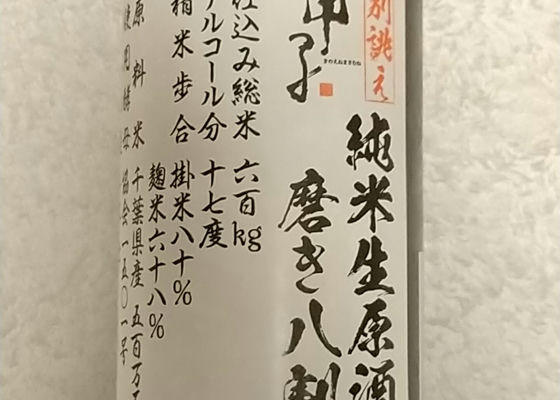 別誂え
純米生原酒
磨き八割
甲子
きのえねまさむね
仕込み総米 六百kg
アルコール分 十七度
精米歩合 掛米八十%
麹米六十八%
原料米 千葉県産 五百万
使用酵母 協会一五〇一号